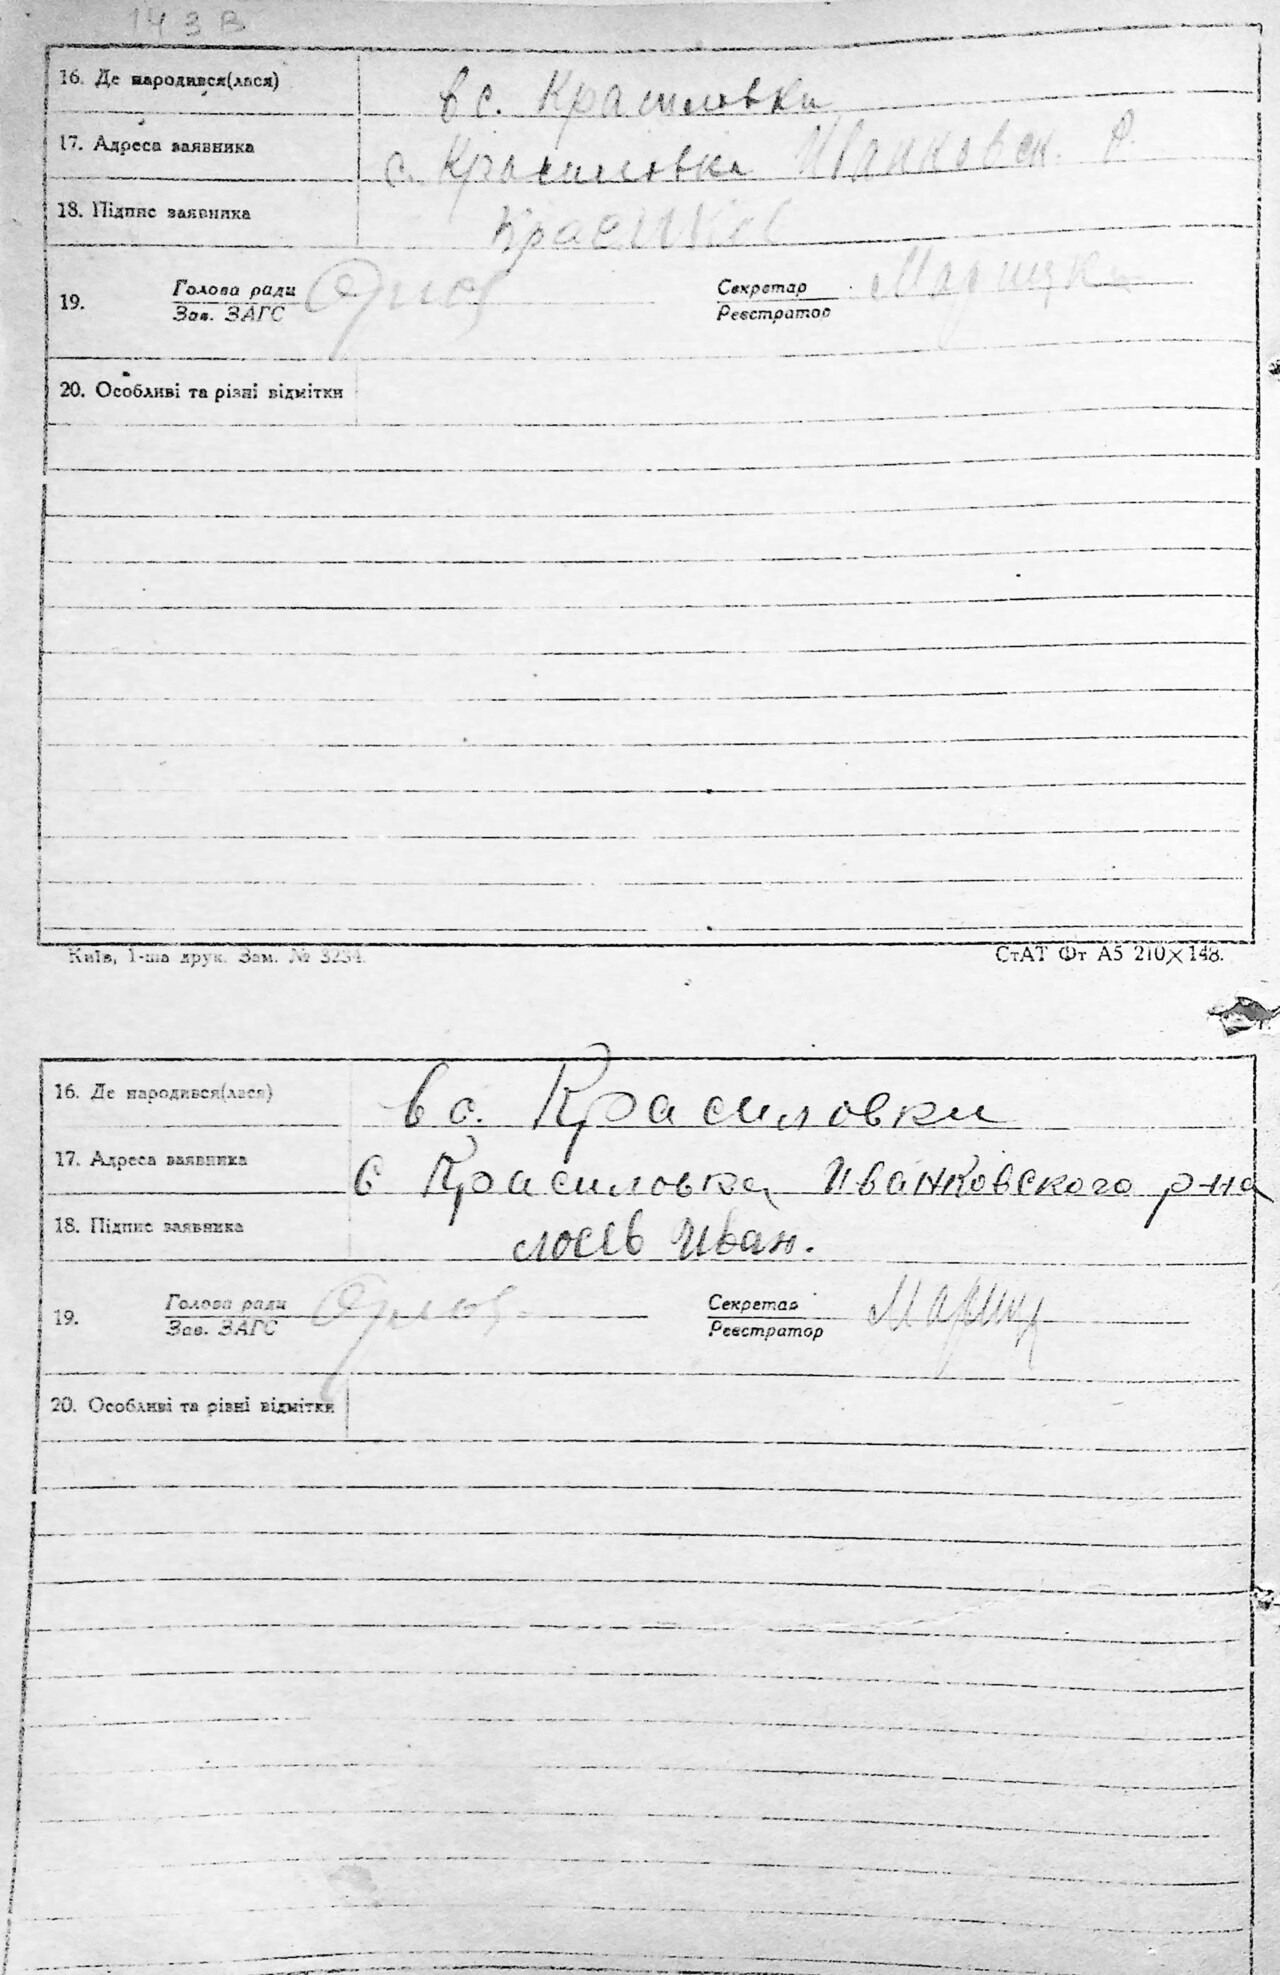 143 В
16. Де народився(лася) в с. Красиловки
17. Адреса заявника с. Красиловка Иванковск. Р.
18. Підпис заявника
19. Голова ради Секретар
Зав. ЗАГС Реєстратор
20. Особливі та різні відмітки
Київ, 1-ша друк. Зам. № 3234. СтАТ Фт А5 210×148.
16. Де народився(лася) в с. Красиловки
17. Адреса заявника с Красиловка Иванковского р-на
18. Підпис заявника лосев Иван.
19. Голова ради Секретар
Зав. ЗАГС Реєстратор
20. Особливі та різні відмітки